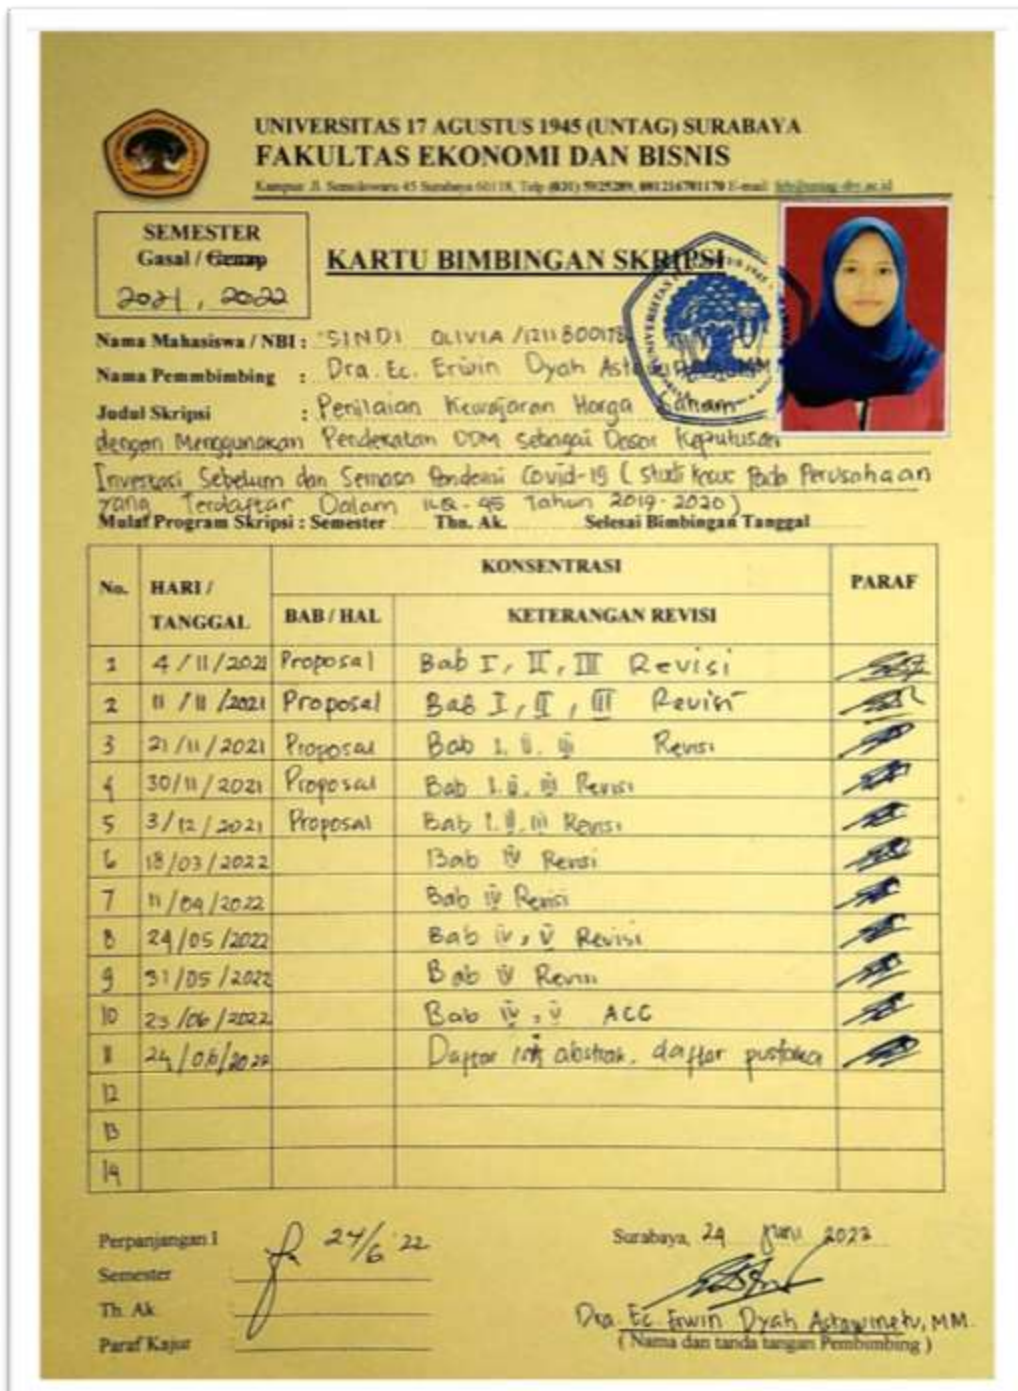 UNIVERSITAS 17 AGUSTUS 1945 (UNTAG) SURABAYA
FAKULTAS EKONOMI DAN BISNIS
Kampus: Jl. Semolowaru 45 Surabaya 60118, Telp (031) 5925289, 081216701170 E-mail: feb@untag-sby.ac.id
SEMESTER
Gasal / Genap
2021, 2022
KARTU BIMBINGAN SKRIPSI
Nama Mahasiswa / NBI : SINDI OLIVIA /
Nama Pemmbimbing : Dra. Ec. Erwin Dyah MM
Judul Skripsi : Penilaian Kewajaran Harga Saham
dengan Menggunakan Pendekatan DDM sebagai Dasar Keputusan
Investasi Sebelum dan Semasa Pandemi Covid-19 ( Studi Kasus Pada Perusahaan
yang Terdaftar Dalam 45 Tahun 2019-2020)
Mulai Program Skripsi : Semester Thn. Ak. Selesai Bimbingan Tanggal
No. HARI / TANGGAL KONSENTRASI PARAF
BAB / HAL KETERANGAN REVISI
1 4 / 11 / 2021 Proposal Bab I, II, III Revisi
2 11 / 11 / 2021 Proposal Bab I, II, III Revisi
3 21 / 11 / 2021 Proposal Bab I. II. III Revisi
4 30 / 11 / 2021 Proposal Bab I. II. III Revisi
5 3 / 12 / 2021 Proposal Bab I. II. III Revisi
6 18 / 03 / 2022 Bab IV Revisi
7 11 / 04 / 2022 Bab IV Revisi
8 24 / 05 / 2022 Bab IV, V Revisi
9 31 / 05 / 2022 Bab Revisi
10 23 / 06 / 2022 Bab IV, V ACC
11 24 / 06 / 2022 Daftar abstrak, daftar pustaka
12
13
14
Perpanjangan I 24/6 '22
Semester
Th. Ak
Paraf Kajur
Surabaya, 24 Juni 2022
Dra. Ec. Erwin Dyah Astawinetu, MM
( Nama dan tanda tangan Pembimbing )